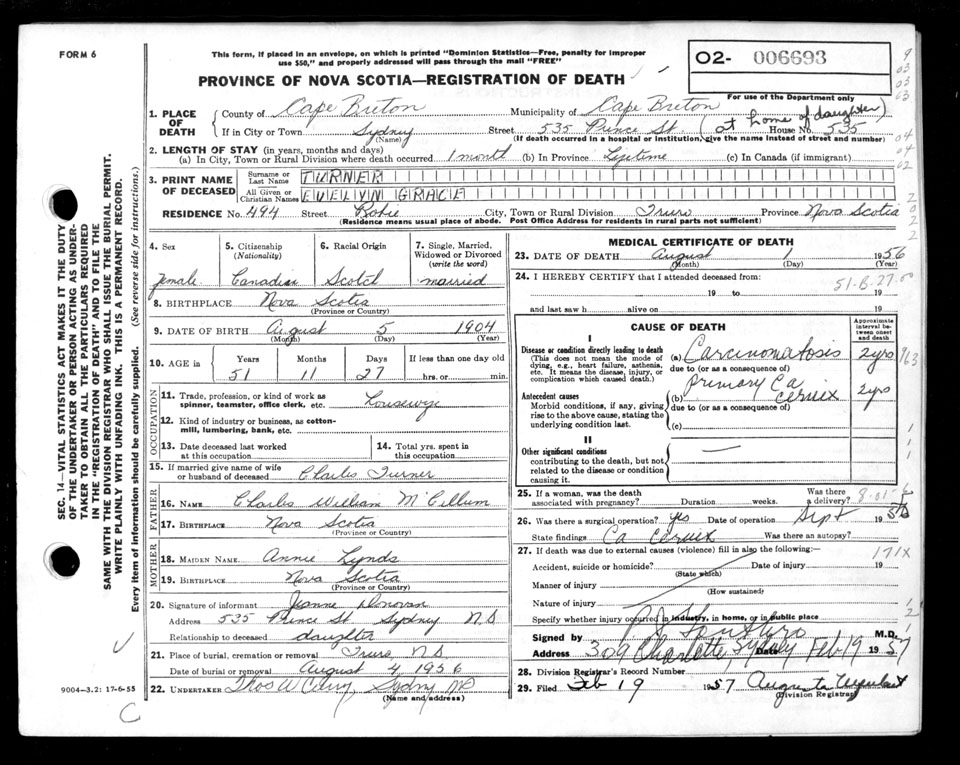 FORM 6
This form, if placed in an envelope, on which is printed "Dominion Statistics—Free, penalty for improper
use $50," and properly addressed will pass through the mail "FREE"
PROVINCE OF NOVA SCOTIA—REGISTRATION OF DEATH
02- 006693
For use of the Department only
1. PLACE OF DEATH
County of Cape Breton Municipality of Cape Breton
(at home of daughter)
If in City or Town Sydney Street 535 Prince St. House No. 535
(Name) (If death occurred in a hospital or institution, give the name instead of street and number)
2. LENGTH OF STAY (in years, months and days)
(a) In City, Town or Rural Division where death occurred 1 month (b) In Province Lifetime (c) In Canada (if immigrant)
3. PRINT NAME OF DECEASED
Surname or Last Name TURNER
All Given or Christian Names EVELYN GRACE
RESIDENCE No. 494 Street Robie City, Town or Rural Division Truro Province Nova Scotia
(Residence means usual place of abode. Post Office Address for residents in rural parts not sufficient)
4. Sex
female
5. Citizenship (Nationality)
Canadian
6. Racial Origin
Scotch
7. Single, Married, Widowed or Divorced (write the word)
married
8. BIRTHPLACE Nova Scotia
(Province or Country)
9. DATE OF BIRTH August 5 1904
(Month) (Day) (Year)
10. AGE in Years Months Days If less than one day old
51 11 27 hrs. or min.
OCCUPATION
11. Trade, profession, or kind of work as
spinner, teamster, office clerk, etc. Housewife
12. Kind of industry or business, as cotton-
mill, lumbering, bank, etc.
13. Date deceased last worked
at this occupation
14. Total yrs. spent in
this occupation
15. If married give name of wife
or husband of deceased Charles Turner
FATHER
16. NAME Charles William
17. BIRTHPLACE Nova Scotia
(Province or Country)
MOTHER
18. MAIDEN NAME Annie Lynds
19. BIRTHPLACE Nova Scotia
(Province or Country)
20. Signature of informant Jeanne Donovan
Address 535 Prince St. Sydney N.S.
Relationship to deceased daughter
21. Place of burial, cremation or removal Truro, N.S.
Date of burial or removal August 4 1956
22. UNDERTAKER Thos W Sydney NS
(Name and address)
MEDICAL CERTIFICATE OF DEATH
23. DATE OF DEATH August 1 1956
(Month) (Day) (Year)
24. I HEREBY CERTIFY that I attended deceased from:
19 to 19
and last saw h alive on 19
CAUSE OF DEATH
Approximate interval between onset and death
I
Disease or condition directly leading to death
(This does not mean the mode of
dying, e.g., heart failure, asthenia,
etc. It means the disease, injury, or
complication which caused death.)
(a) Carcinomatosis 2 yrs
due to (or as a consequence of)
Antecedent causes
Morbid conditions, if any, giving
rise to the above cause, stating the
underlying condition last.
(b) primary Ca cervix 2 yrs
due to (or as a consequence of)
(c)
II
Other significant conditions
contributing to the death, but not
related to the disease or condition
causing it.
25. If a woman, was the death
associated with pregnancy? Duration weeks. Was there a delivery?
26. Was there a surgical operation? yes Date of operation Sept 19
State findings Ca cervix Was there an autopsy?
27. If death was due to external causes (violence) fill in also the following:—
171X
Accident, suicide or homicide? Date of injury 19
(State which)
Manner of injury
(How sustained)
Nature of injury
Specify whether injury occurred in industry, in home, or in public place
Signed by M.D.
Address 309 Charlotte, Sydney Date Feb 19 1957
28. Division Registrar's Record Number
29. Filed Feb 19 1957 Augusta
(Division Registrar)
SEC. 14—VITAL STATISTICS ACT MAKES IT THE DUTY
OF THE UNDERTAKER OR PERSON ACTING AS UNDER-
TAKER TO OBTAIN ALL THE PARTICULARS REQUIRED
IN THE "REGISTRATION OF DEATH" AND TO FILE THE
SAME WITH THE DIVISION REGISTRAR WHO SHALL ISSUE THE BURIAL PERMIT.
WRITE PLAINLY WITH UNFADING INK. THIS IS A PERMANENT RECORD.
Every item of information should be carefully supplied. (See reverse side for instructions.)
9004—3.2: 17-6-55